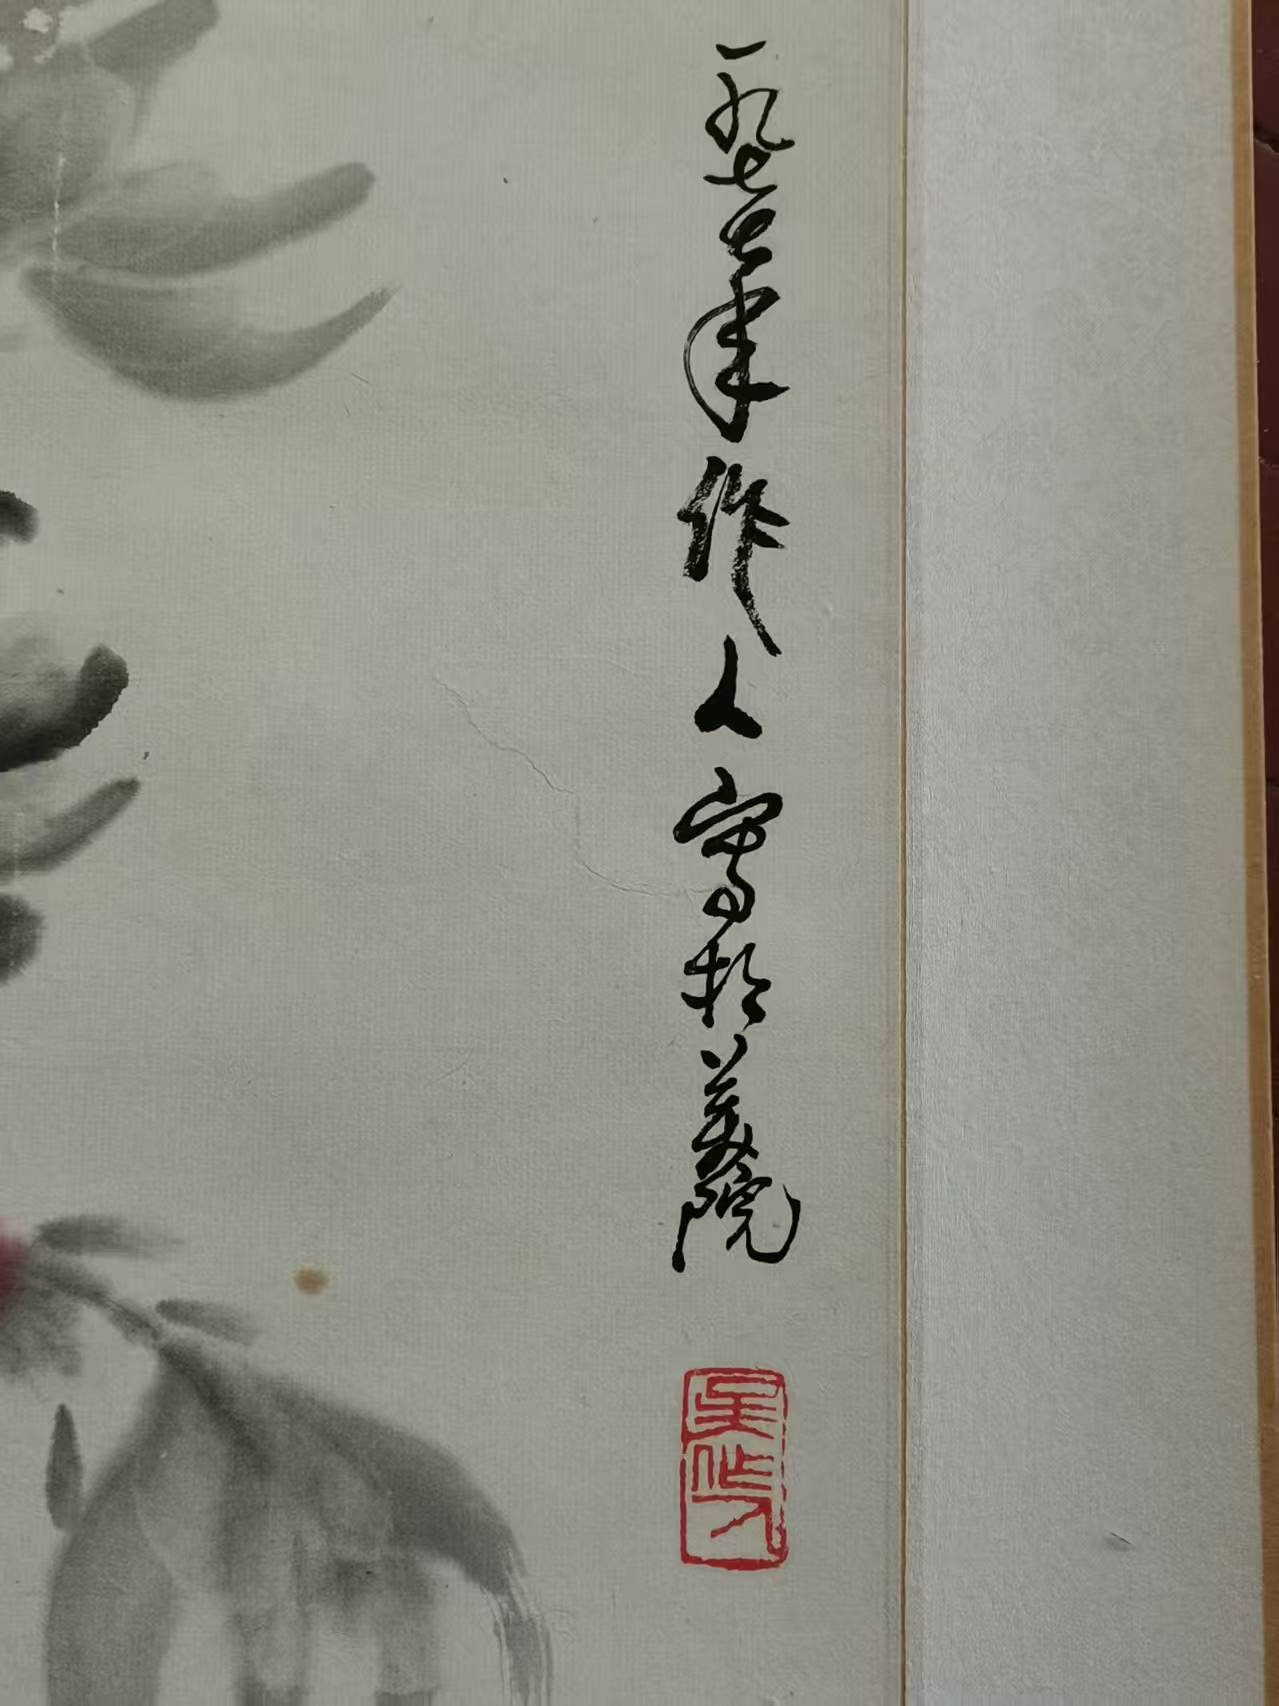 一九七七年作人写於美院
吴作人